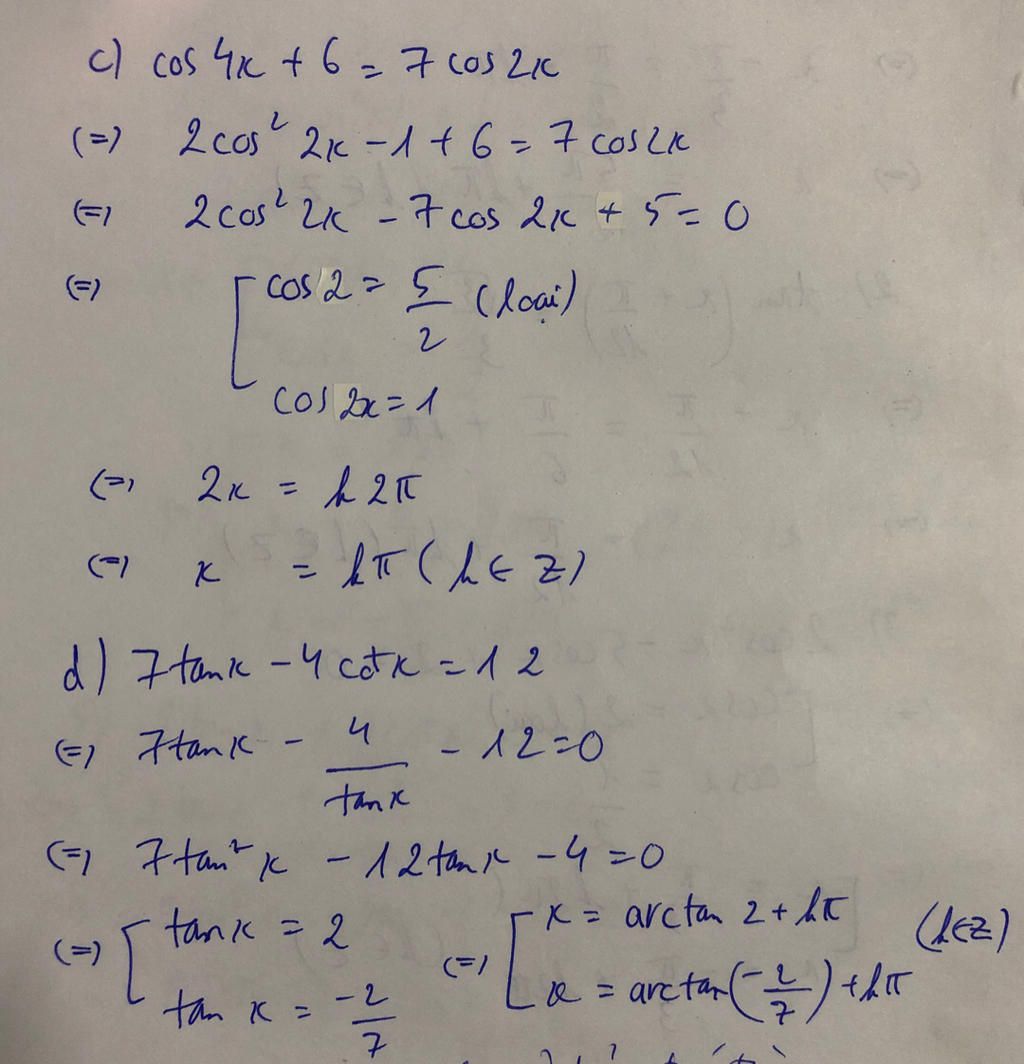 c) cos 4x + 6 = 7 cos 2x
(=) 2cos² 2x - 1 + 6 = 7 cos 2x
(=) 2cos² 2x - 7 cos 2x + 5 = 0
(=) [ cos 2 = 5/2 (loại)
cos 2x = 1
(=) 2x = k2π
(=) x = kπ (k ∈ Z)
d) 7tanx - 4cotx = 12
(=) 7tanx - 4/tanx - 12 = 0
(=) 7tan² x - 12tanx - 4 = 0
(=) [ tanx = 2 (=) [ x = arctan 2 + kπ (k∈Z)
tan x = -2/7 x = arctan(-2/7) + kπ